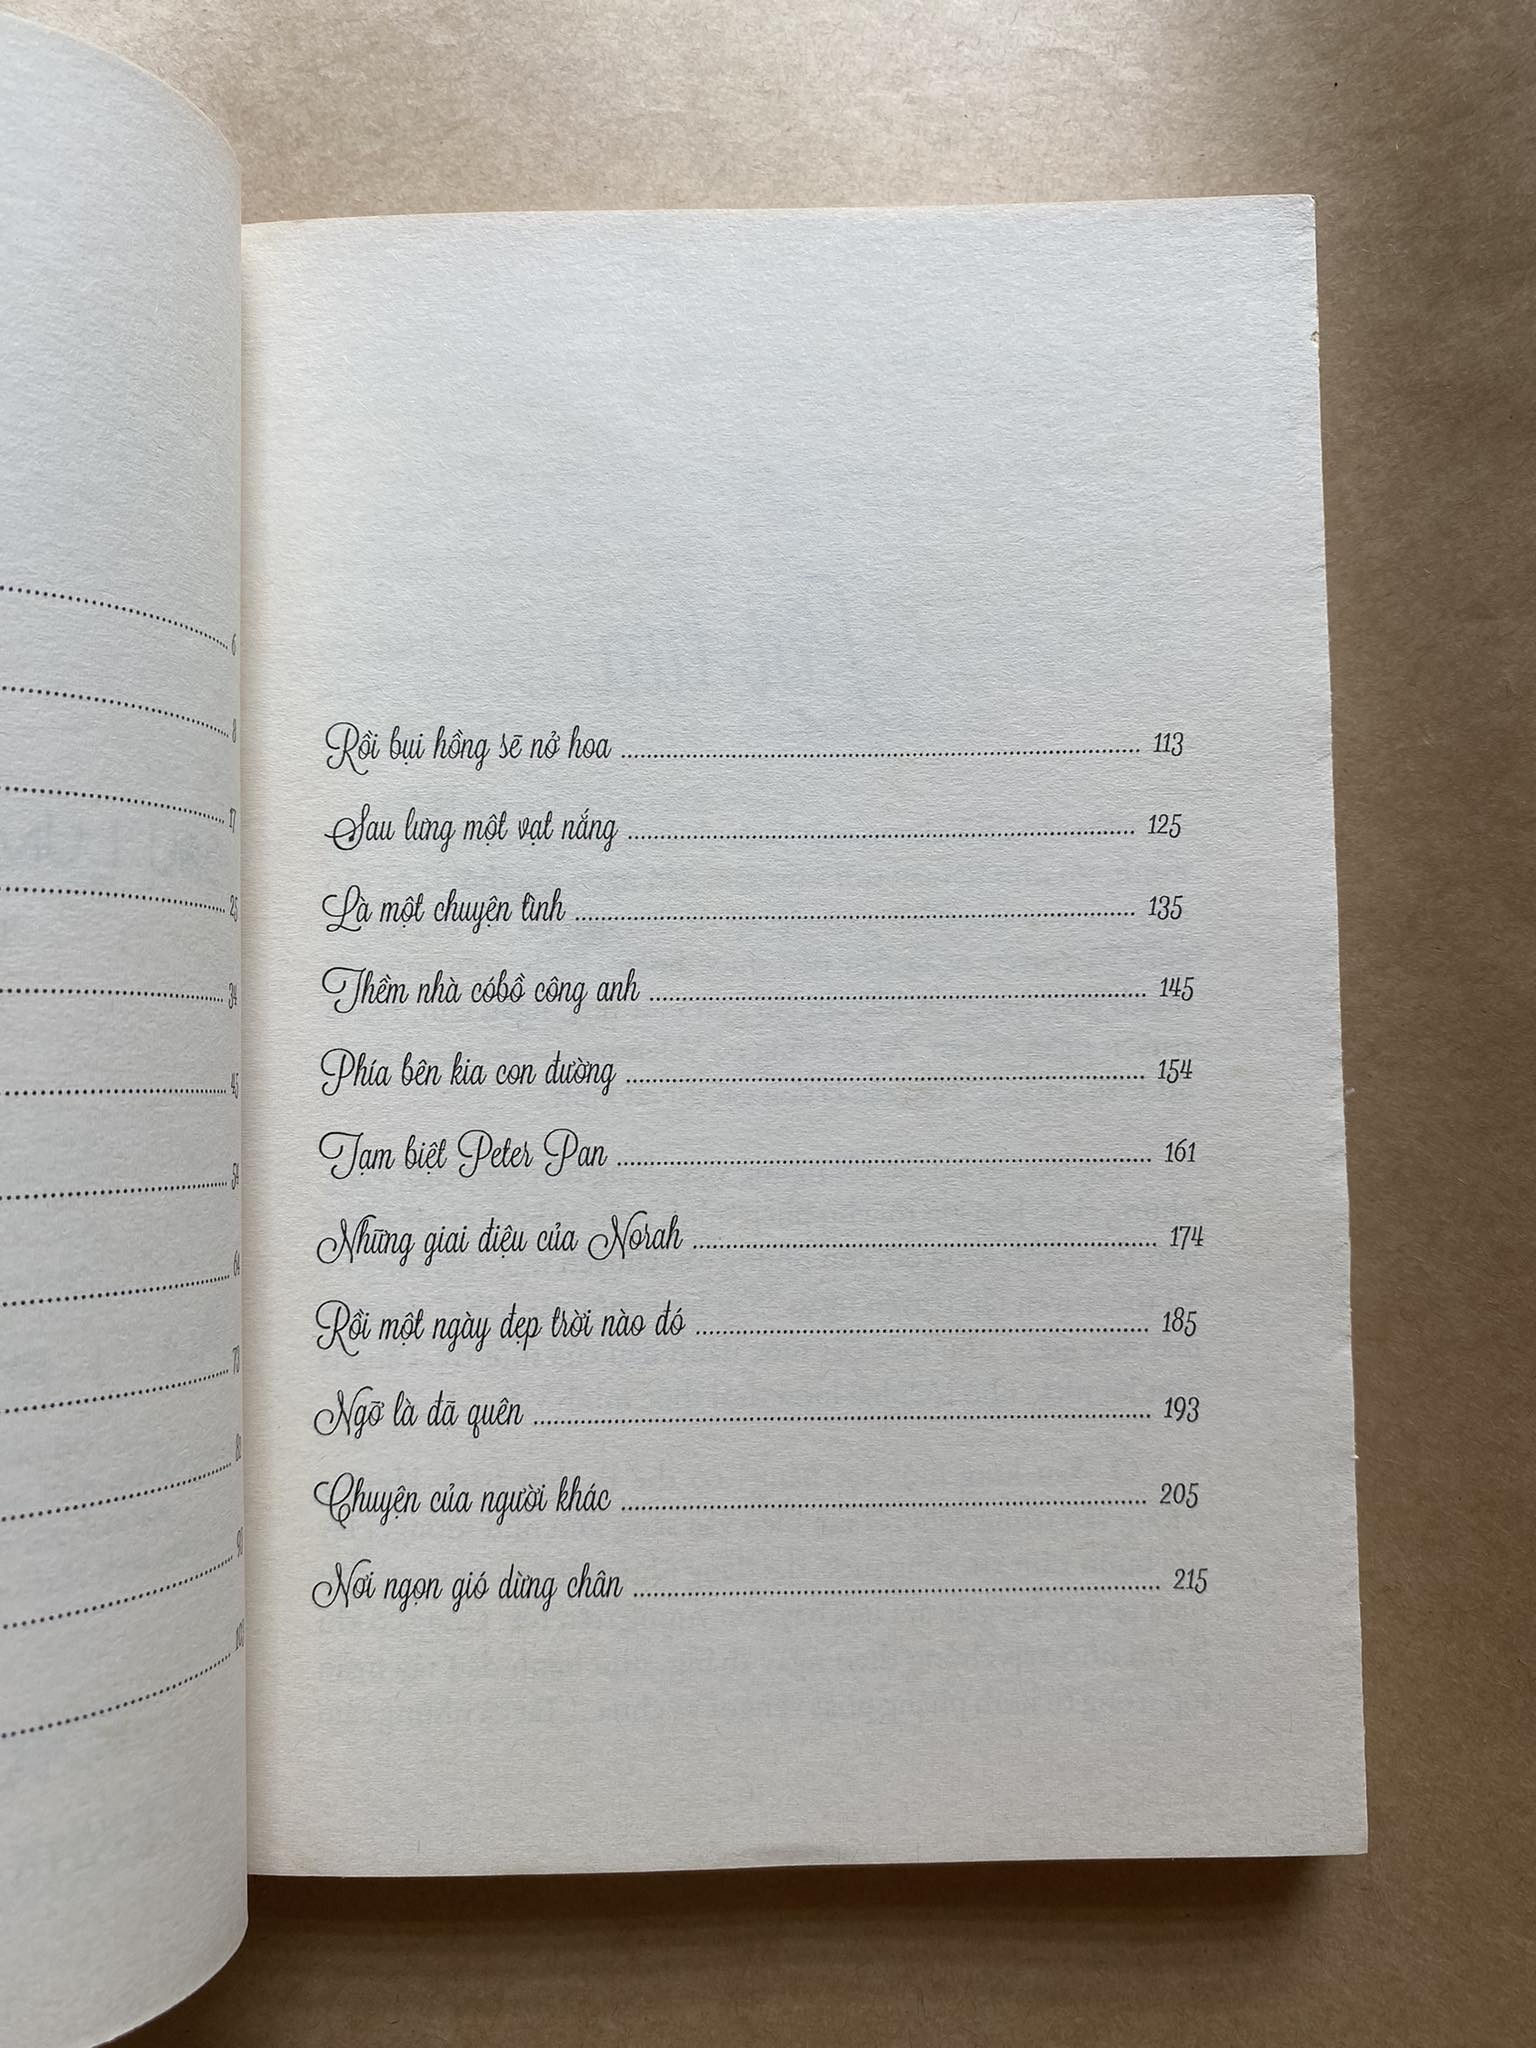 6
8
17
25
34
45
54
64
73
82
92
103
Rồi bụi hồng sẽ nở hoa ........ 113
Sau lưng một vạt nắng ........ 125
Là một chuyện tình ........ 135
Thềm nhà cóbồ công anh ........ 145
Phía bên kia con đường ........ 154
Tạm biệt Peter Pan ........ 161
Những giai điệu của Norah ........ 174
Rồi một ngày đẹp trời nào đó ........ 185
Ngỡ là đã quên ........ 193
Chuyện của người khác ........ 205
Nơi ngọn gió dừng chân ........ 215